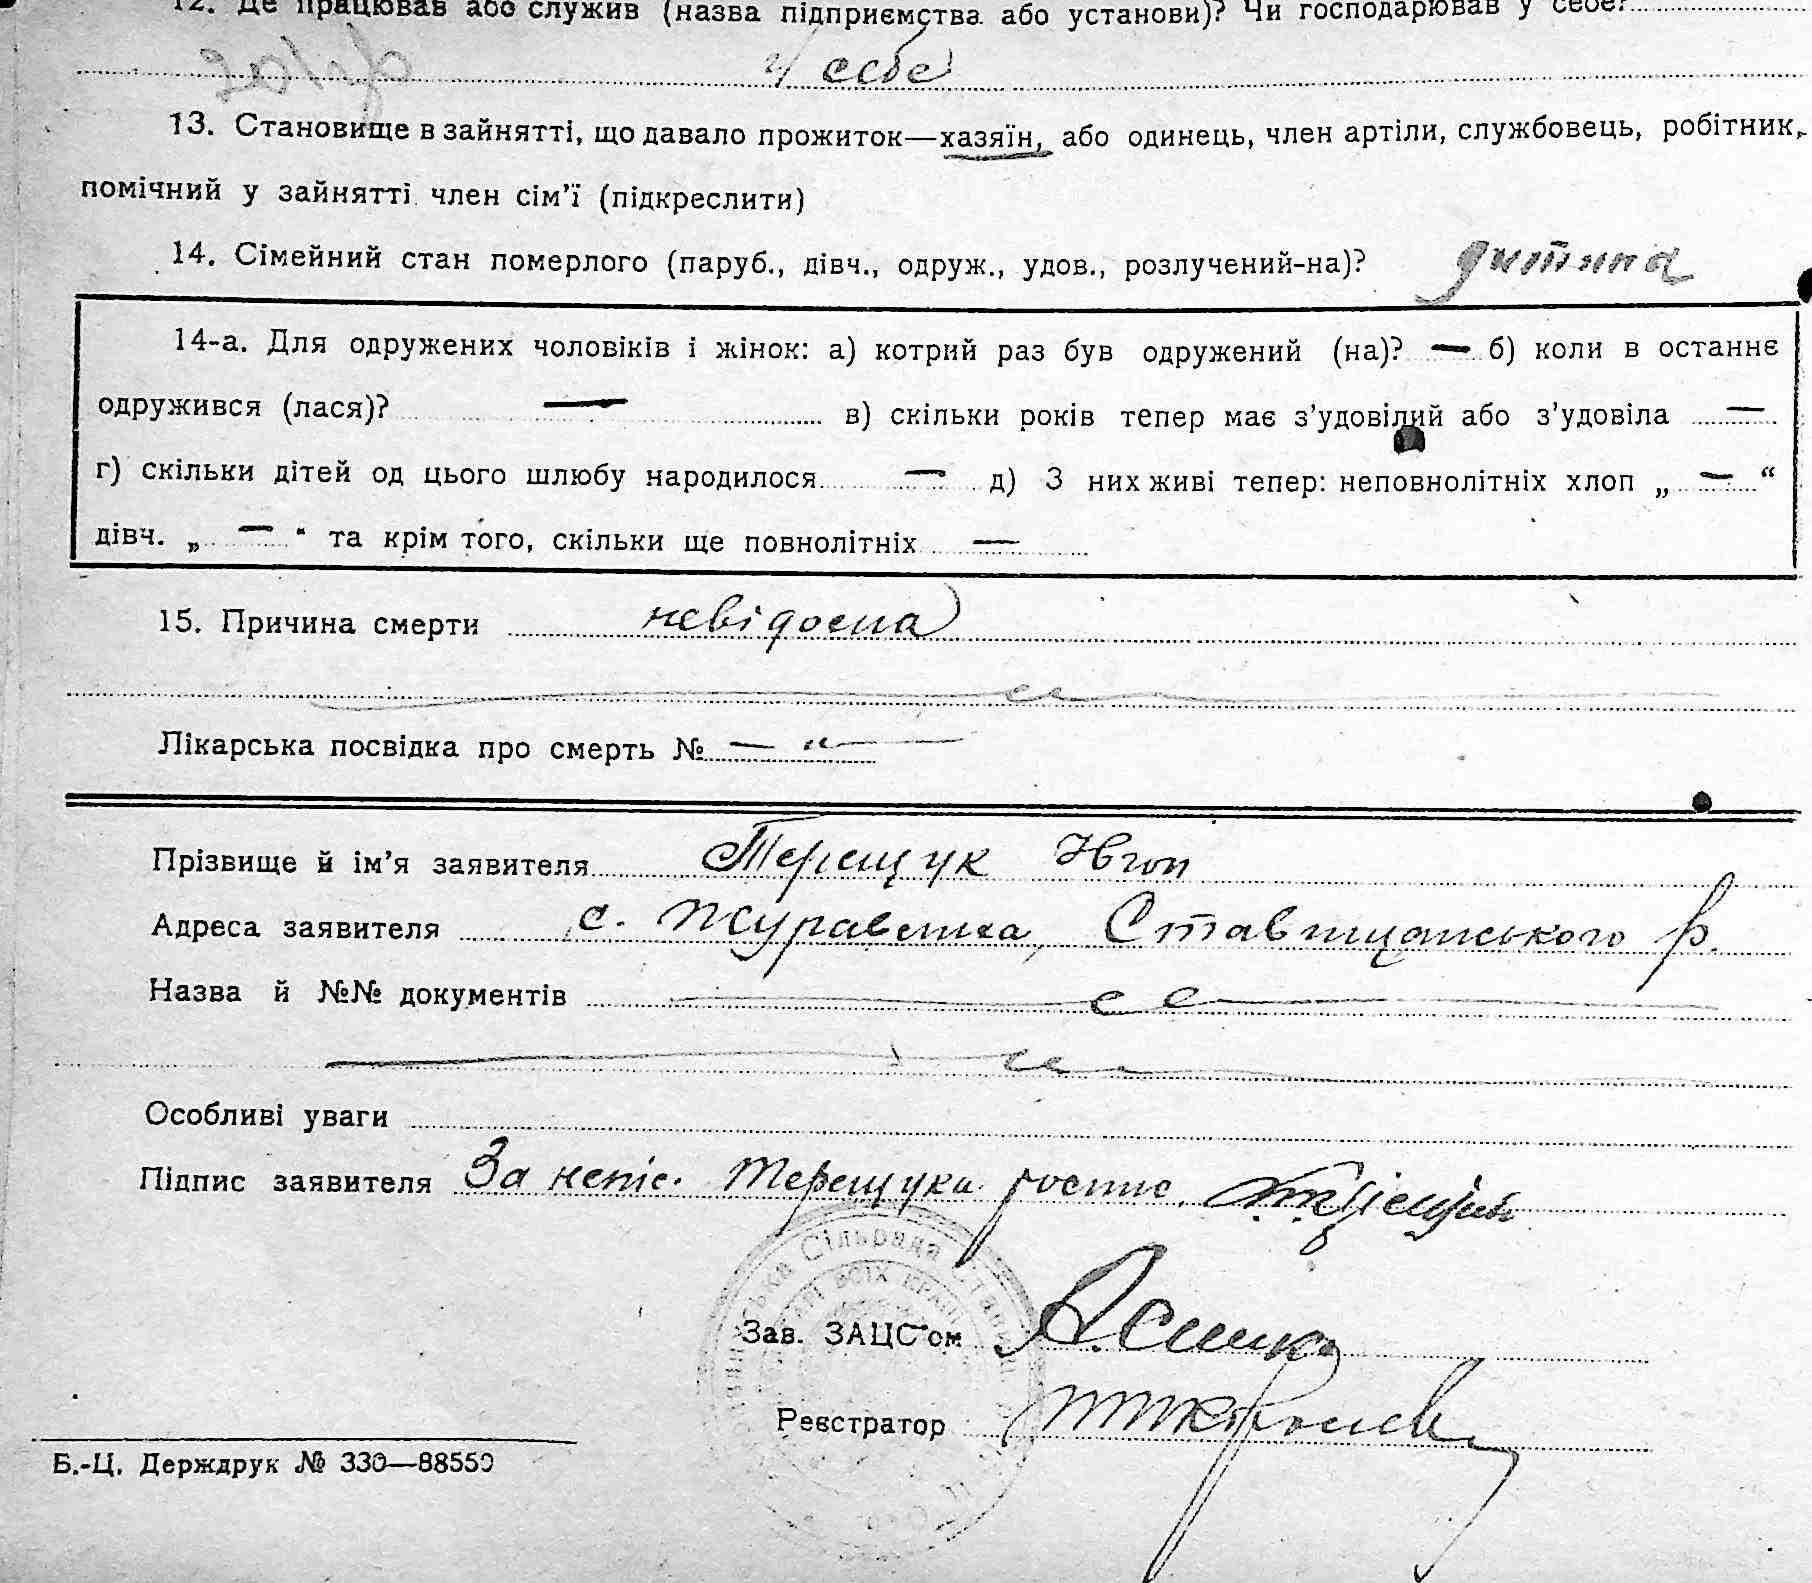 12. Де працював або служив (назва підприємства або установи)? Чи господарював у себе?
у себе
13. Становище в зайнятті, що давало прожиток—хазяїн, або одинець, член артіли, службовець, робітник,
помічний у зайнятті член сім’ї (підкреслити)
14. Сімейний стан померлого (паруб., дівч., одруж., удов., розлучений-на)? дитина
14-а. Для одружених чоловіків і жінок: а) котрий раз був одружений (на)? — б) коли в останнє
одружився (лася)? — в) скільки років тепер має з’удовілий або з’удовіла —
г) скільки дітей од цього шлюбу народилося — д) З них живі тепер: неповнолітніх хлоп „ — “
дівч. „ — “ та крім того, скільки ще повнолітніх —
15. Причина смерти невідома
Лікарська посвідка про смерть № — „ —
Прізвище й ім’я заявителя Терещук
Адреса заявителя с. Журавлиха, Ставищанського р.
Назва й №№ документів
Особливі уваги
Підпис заявителя За непис. Терещука роспис.
Сільрада
всіх країн
Зав. ЗАЦС’ом
Реєстратор
Б.-Ц. Держдрук № 330—88550